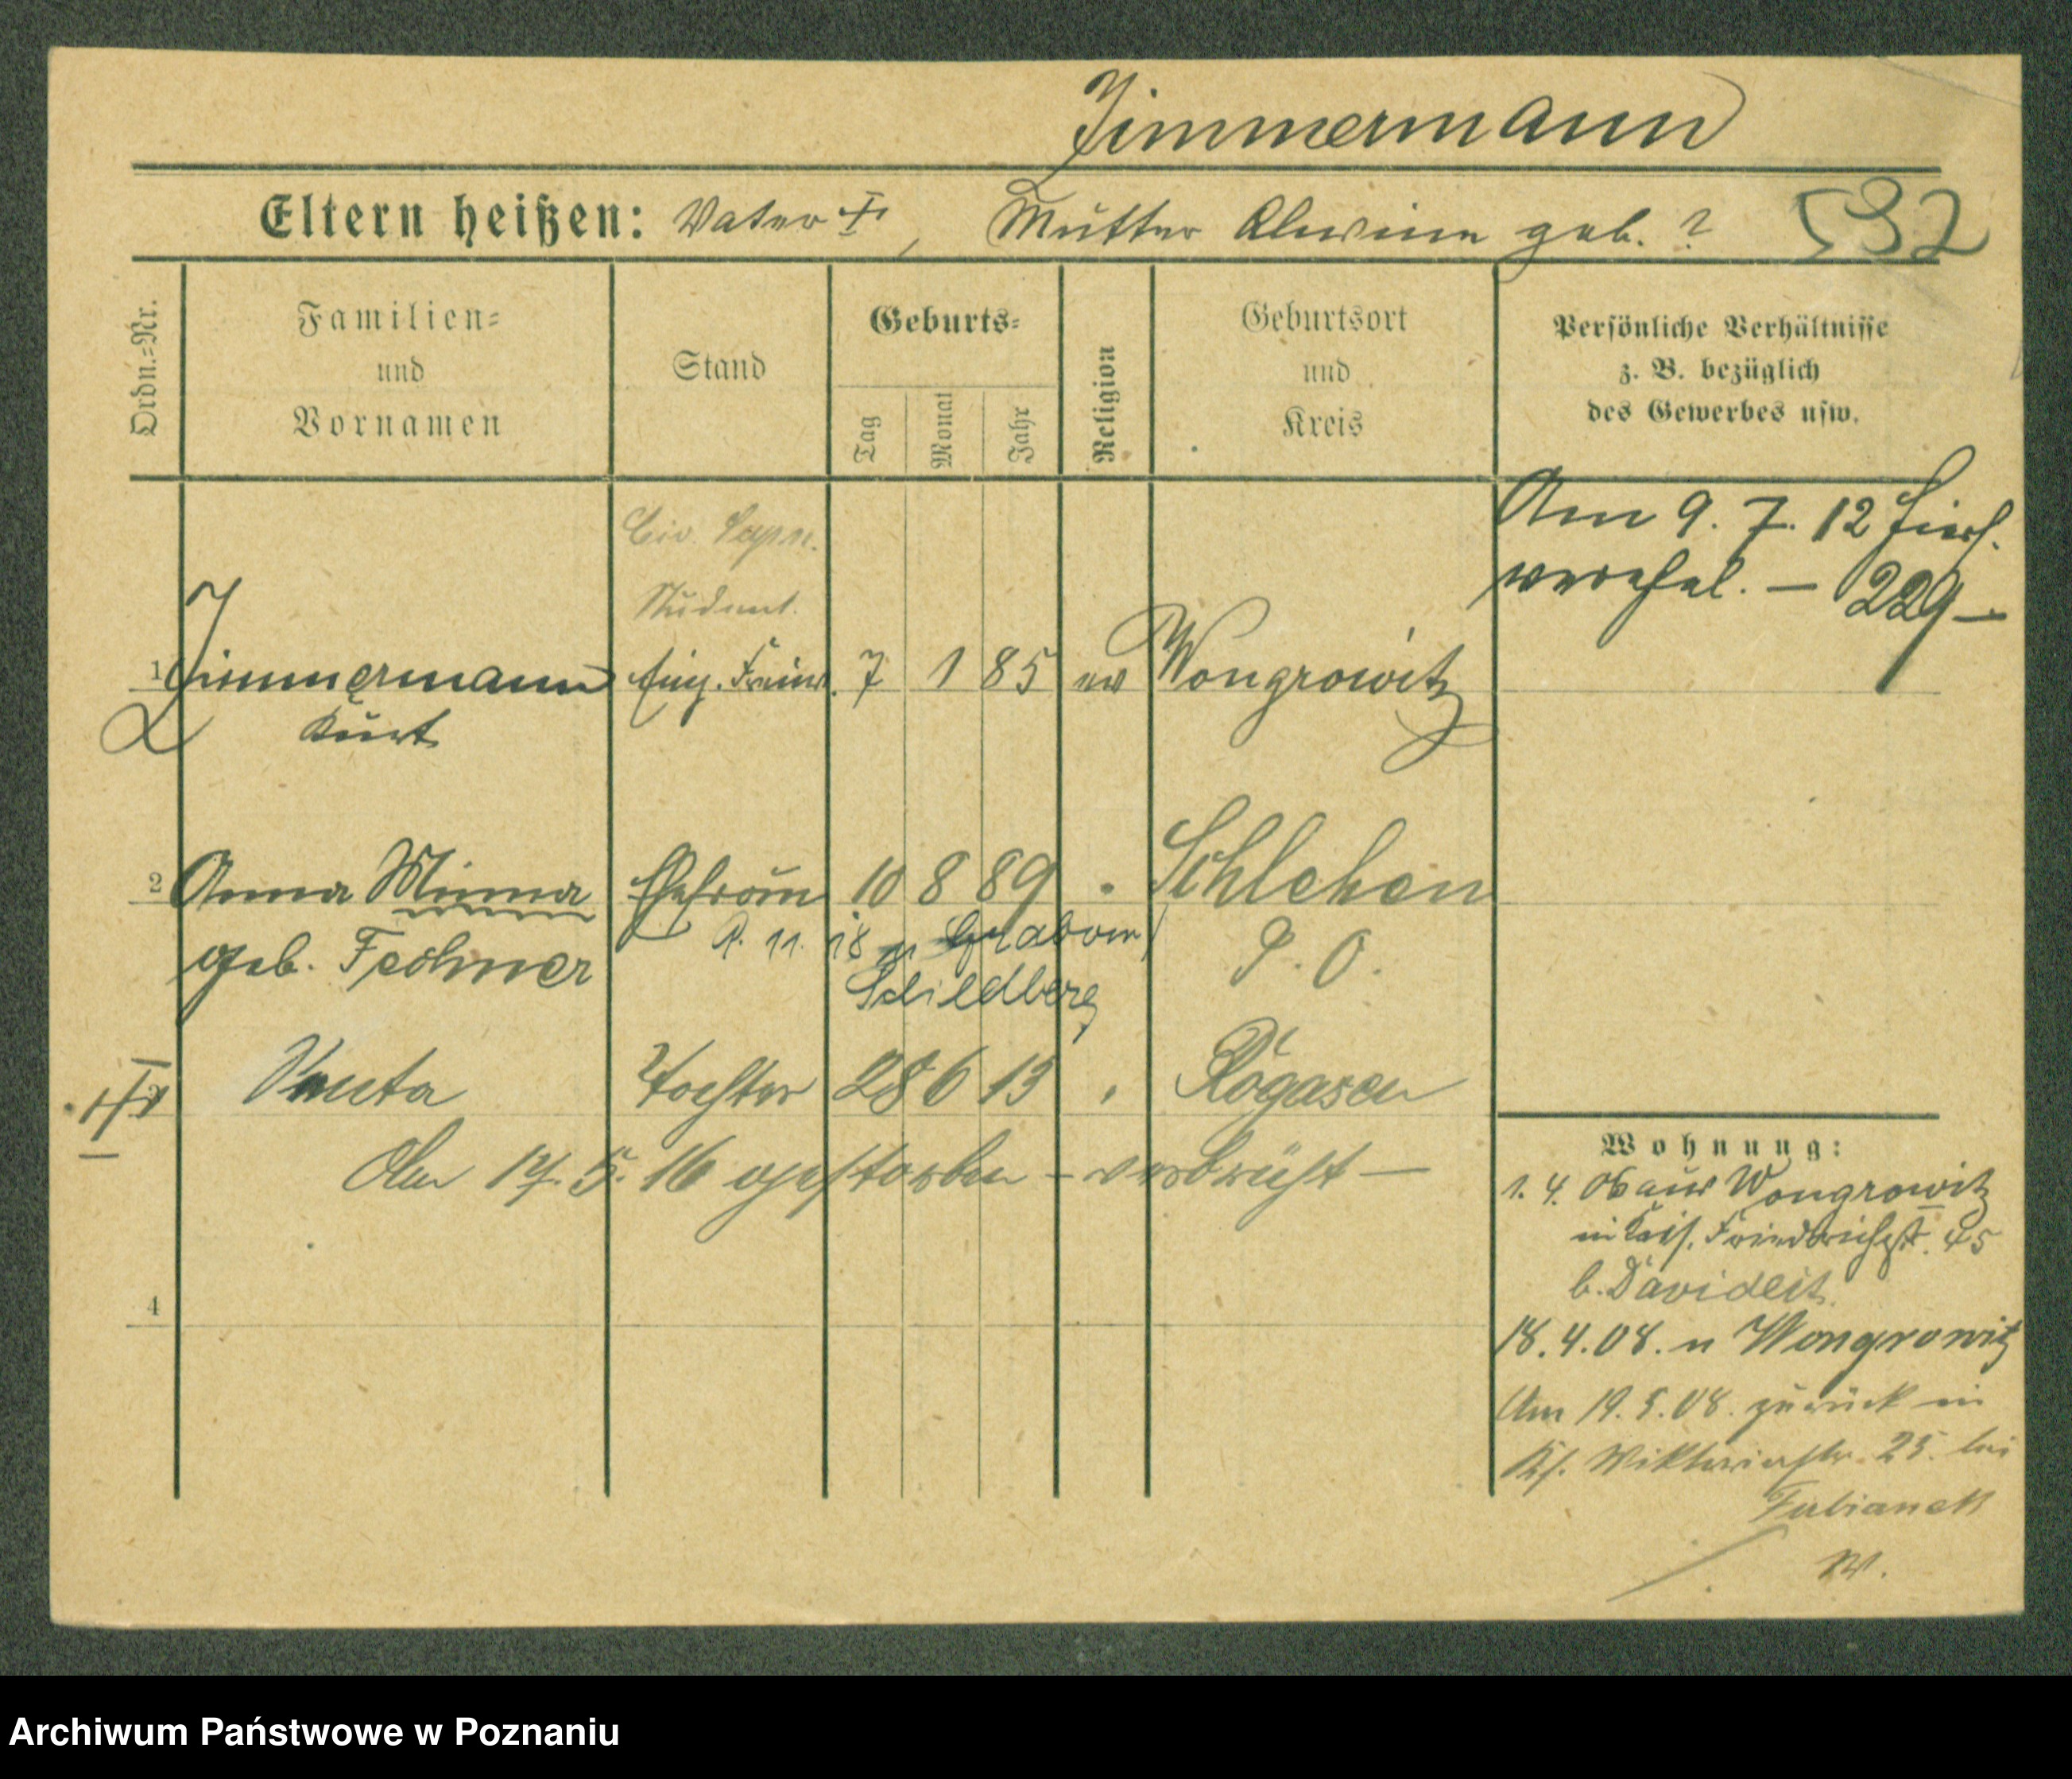 Zimmermann
Eltern heißen: Vater †, Mutter Alwine geb. ? 532
Ordn.=Nr.
Familien=
und
Vornamen
Stand
Geburts=
Tag
Monat
Jahr
Religion
Geburtsort
und
Kreis
Persönliche Verhältnisse
z. B. bezüglich
des Gewerbes usw.
Am 9. 7. 12
229
Student.
1 Zimmermann Einj. Freiw. 7 1 85 ev Wongrowitz
Kurt
2 Anna Minna Ehefrau 10 8 89 " Schlehen
geb. Fechner P. O.
11. 18 n Grabow
Schildberg
Tochter 28 6 13 " Rogasen
Am 17. 5. 16 gestorben
4
Wohnung:
1. 4. 06 aus Wongrowitz
in Kais. Friedrichstr. 45
b. Davideit
18. 4. 08. n Wongrowitz
Am 19. 5. 08. zurück in
Viktoriastr. 25. bei
Fabianek
W.
Archiwum Państwowe w Poznaniu